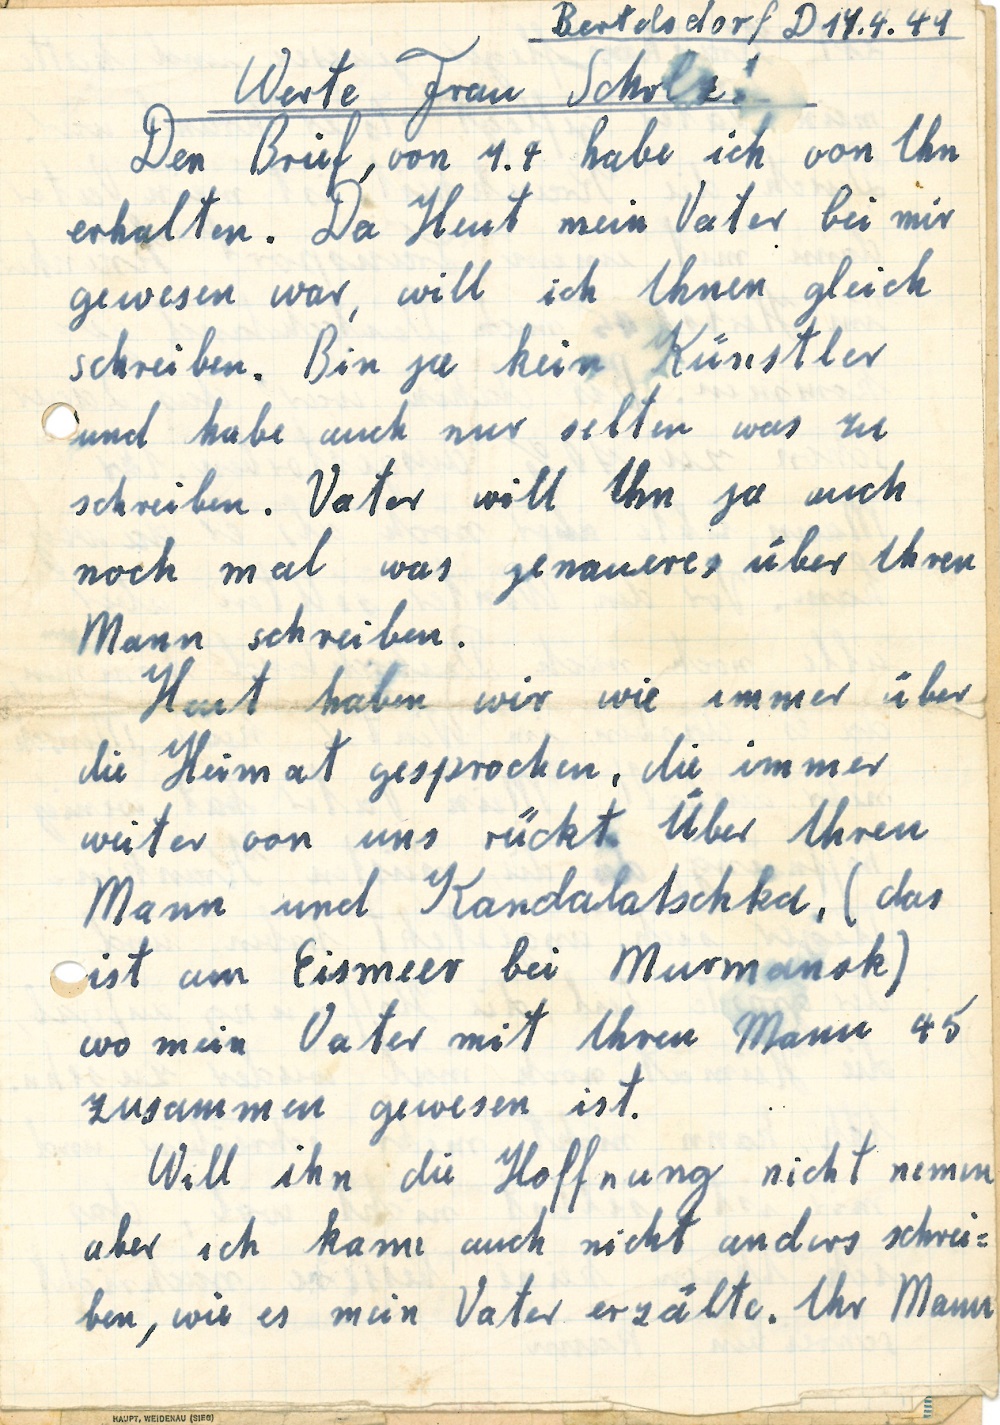 Bertelsdorf D 14.4.49
Werte Frau Scholz!
Den Brief, von 7.4 habe ich von Ihn
erhalten. Da Heut mein Vater bei mir
gewesen war, will ich Ihnen gleich
schreiben. Bin ja kein Künstler
und habe auch nur selten was zu
schreiben. Vater will Ihn ja auch
noch mal was genaueres über Ihren
Mann schreiben.
Heut haben wir wie immer über
die Heimat gesprochen, die immer
weiter von uns rückt. Über Ihren
Mann und Kandalatschka, (das
ist am Eismeer bei Murmansk)
wo mein Vater mit Ihren Mann 45
zusammen gewesen ist.
Will ihn die Hoffnung nicht nemen
aber ich kann auch nicht anders schrei=
ben, wie es mein Vater erzälte. Ihr Mann
HAUPT, WEIDENAU (SIEG)